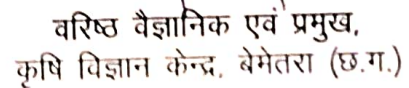 वरिष्ठ वैज्ञानिक एवं प्रमुख,
कृषि विज्ञान केन्द्र, बेमेतरा (छ.ग.)